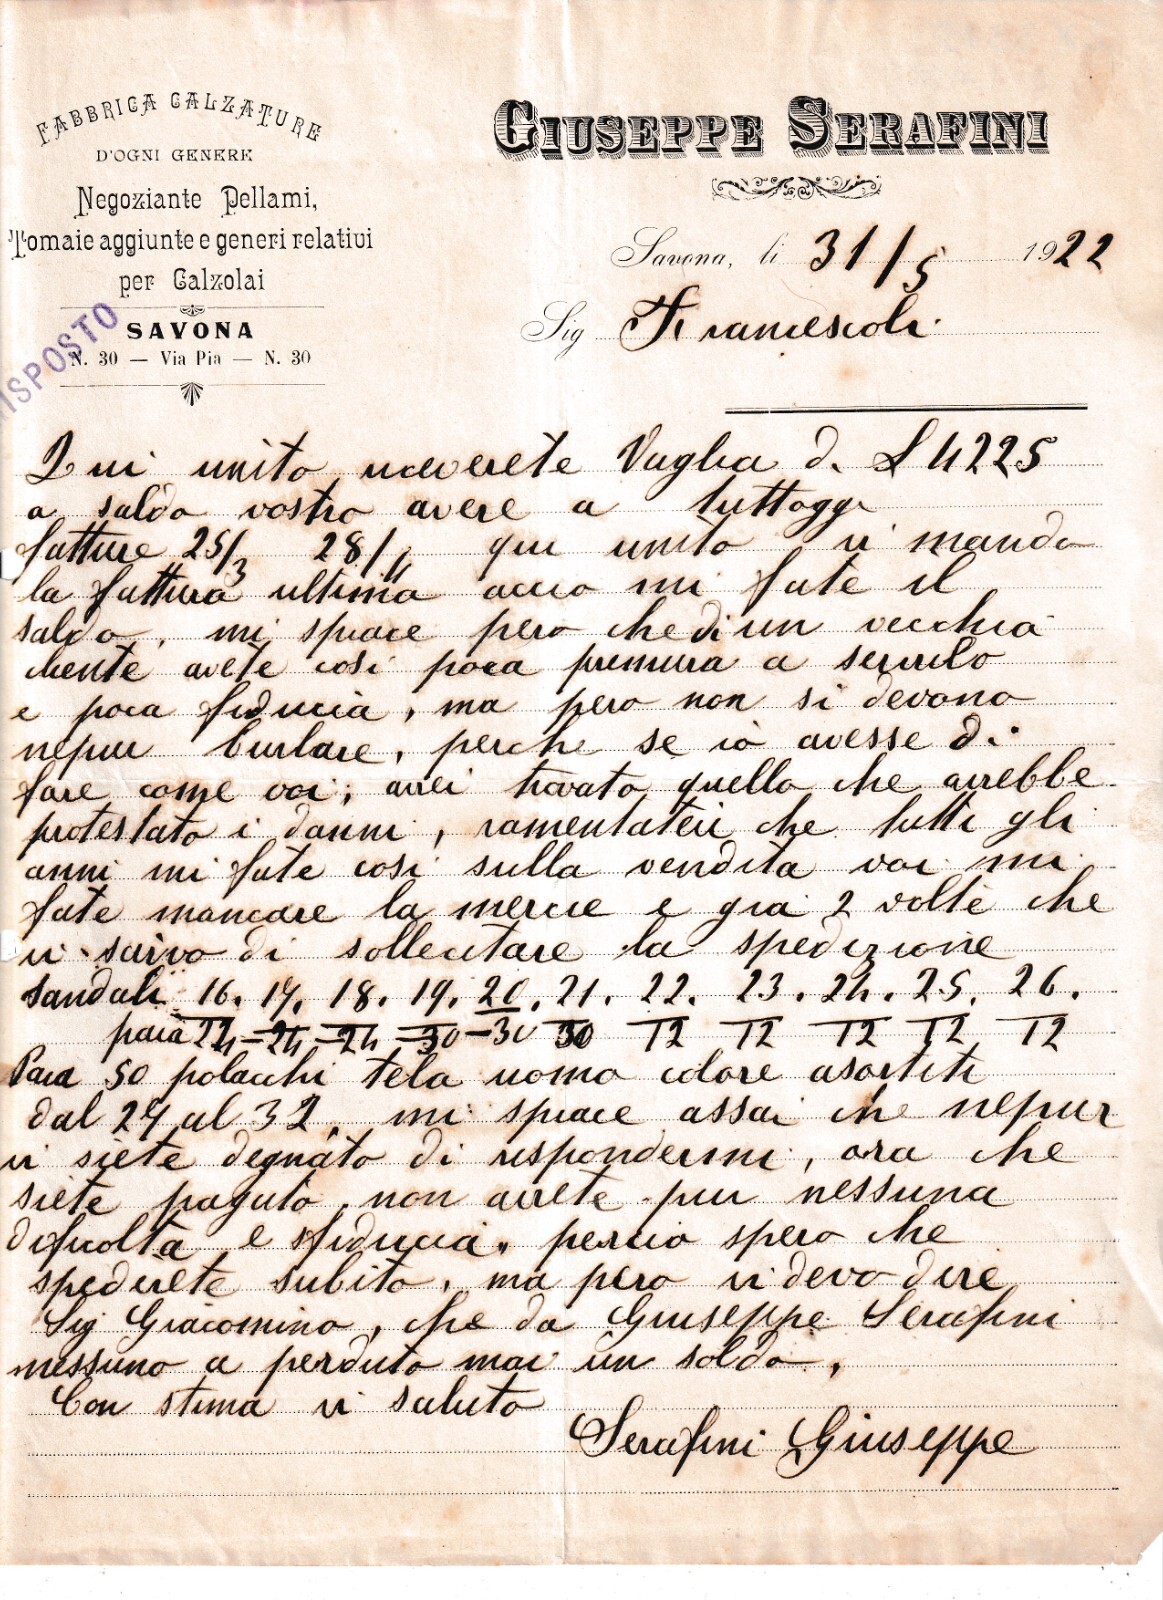 FABBRICA CALZATURE
D'OGNI GENERE
Negoziante Pellami,
Tomaie aggiunte e generi relativi
per Calzolai
SAVONA
N. 30 — Via Pia — N. 30
RISPOSTO
GIUSEPPE SERAFINI
Savona, li 31/5 1922
Sig Francescoli
Qui unito riceverete Vaglia di £ 4225
a saldo vostro avere a tuttoggi
fatture 25/3 28/4 qui unito vi mando
la fattura ultima accio mi fate il
saldo, mi spiace pero che di un vecchia
cliente avete cosi poca premura a servirlo
e poca fiducià, ma pero non si devono
nepur burlare, perche se iò avesse di
fare come voi, avrei trovato quello che avrebbe
protestato i danni, ramentatevi che tutti gli
anni mi fate cosi sulla vendita voi mi
fate mancare la mercie e già 2 volte che
vi scrivo di sollecitare la spedizione
Sandali 16. 17. 18. 19. 20. 21. 22. 23. 24. 25. 26.
paia 24 - 24 - 24 - 30 - 30 30 12 12 12 12 12
Paia 50 polacchi tela uomo colore asortiti
dal 27 al 32. mi spiace assai che nepur
vi siete degnato di rispondermi, ora che
siete pagato, non avrete pur nessuna
dificolta e sfiducia, percio spero che
spedirete subito, ma pero vi devo dire
Sig Giacomino, che da Giuseppe Serafini
nessuno a perduto mai un soldo,
Con stima vi saluto
Serafini Giuseppe